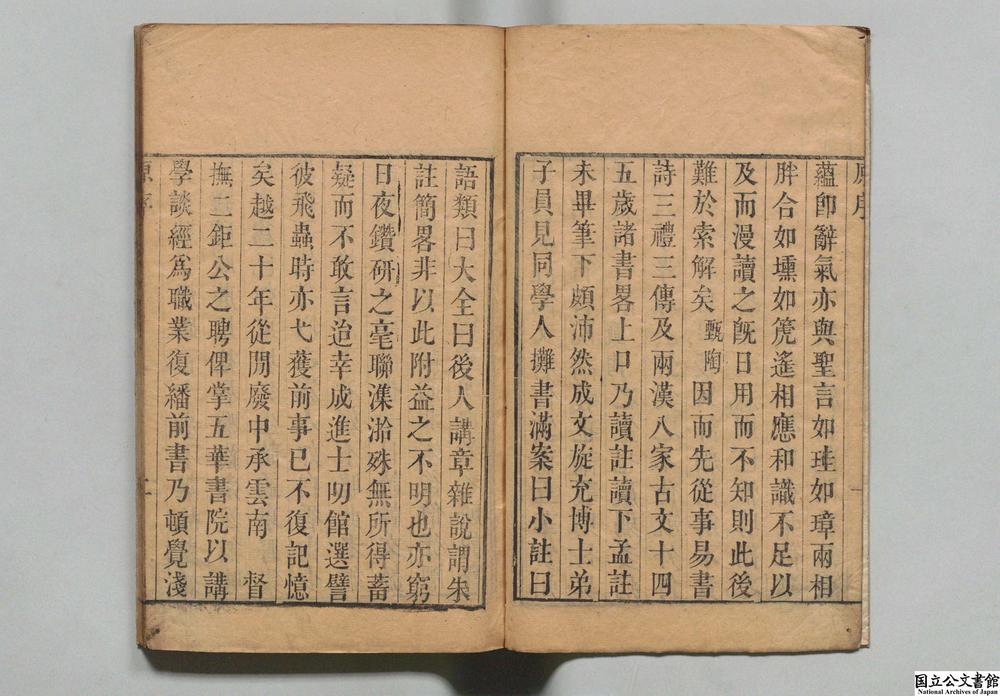 原序
蘊卽辭氣亦與聖言如珪如璋兩相
胖合如壎如箎遙相應和識不足以
及而漫讀之旣日用而不知則此後
難於索解矣甄陶因而先從事易書
詩三禮三傳及兩漢八家古文十四
五歲諸書畧上口乃讀註讀下孟註
未畢筆下頗沛然成文旋充博士弟
子員見同學人攤書滿案曰小註曰
語類曰大全曰後人講章雜說謂朱
註簡畧非以此附益之不明也亦窮
日夜鑽硏之毫聯濮洽殊無所得蓄
疑而不敢言迨幸成進士叨館選譬
彼飛蟲時亦弋獲前事已不復記憶
矣越二十年從閒廢中承雲南 督
撫二鉅公之聘俾掌五華書院以講
學談經爲職業復繙前書乃頓覺淺
原序
二
国立公文書館
National Archives of Japan